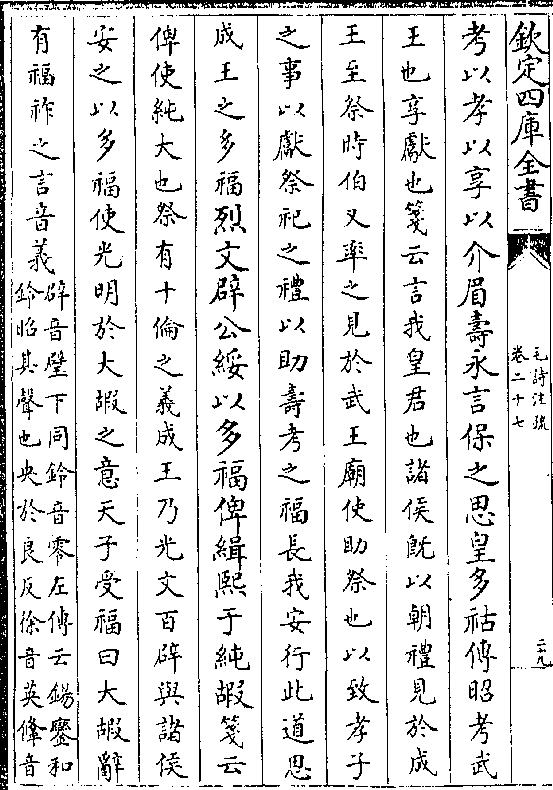 欽定四庫全書
毛詩注疏
卷二十七
二十九
考以孝以享以介眉壽永言保之思皇多祜傳昭考武
王也享獻也箋云言我皇君也諸侯既以朝禮見於成
王至祭時伯又率之見於武王廟使助祭也以致孝子
之事以獻祭祀之禮以助壽考之福長我安行此道思
成王之多福烈文辟公綏以多福俾緝熙于純嘏箋云
俾使純大也祭有十倫之義成王乃光文百辟與諸侯
安之以多福使光明於大嘏之意天子受福曰大嘏辭
有福祚之言音義辟音璧下同鈴音零左傳云鍚鑾和
鈴昭其聲也央於良反徐音英鞗音